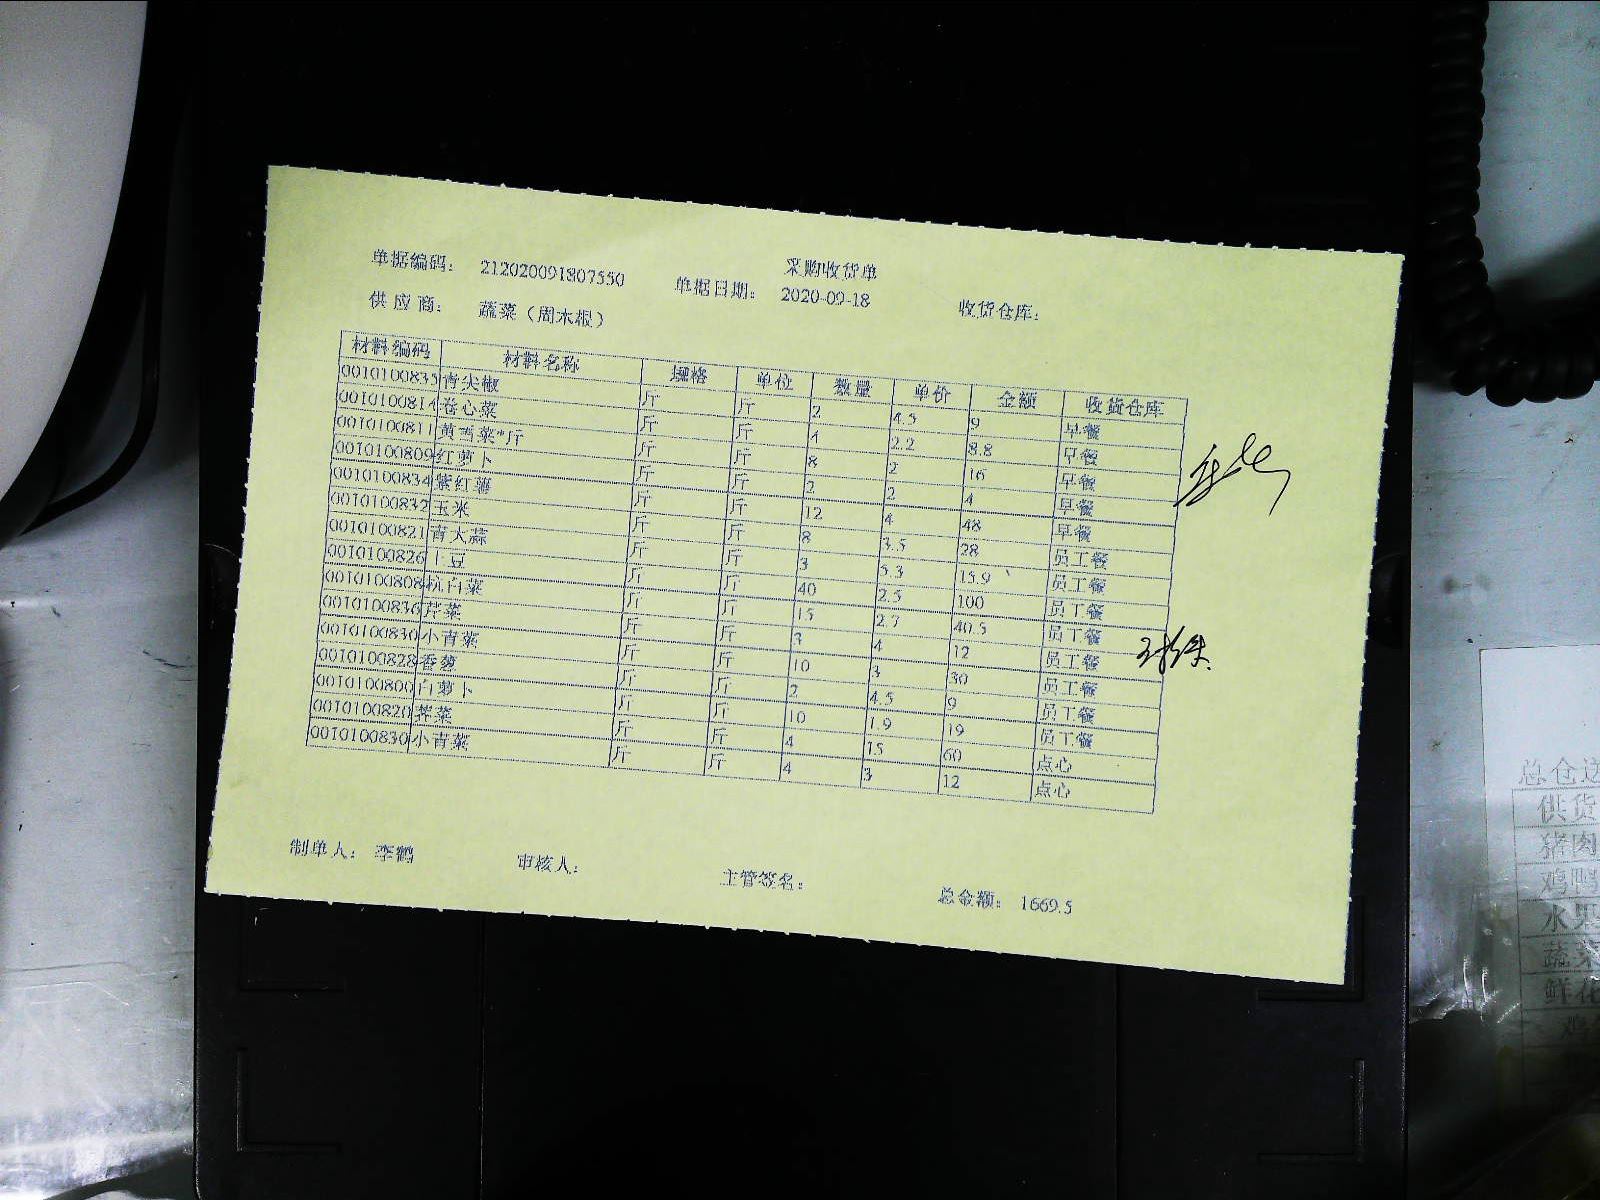 采购收货单
单据编码： 212020091807550 单据日期： 2020-09-18 收货仓库：
供 应 商： 蔬菜（周木根）
材料编码 材料名称 规格 单位 数量 单价 金额 收货仓库
0010100835 青尖椒 斤 斤 2 4.5 9 早餐
0010100814 卷心菜 斤 斤 4 2.2 8.8 早餐
0010100811 黄西菜*斤 斤 斤 8 2 16 早餐
0010100809 红萝卜 斤 斤 2 2 4 早餐
0010100834 紫红薯 斤 斤 12 4 48 早餐
0010100832 玉米 斤 斤 8 3.5 28 员工餐
0010100821 青大蒜 斤 斤 3 5.3 15.9 员工餐
0010100826 土豆 斤 斤 40 2.5 100 员工餐
0010100808 杭白菜 斤 斤 15 2.7 40.5 员工餐
0010100836 芹菜 斤 斤 3 4 12 员工餐
0010100830 小青菜 斤 斤 10 3 30 员工餐
0010100828 香葱 斤 斤 2 4.5 9 员工餐
0010100800 白萝卜 斤 斤 10 1.9 19 员工餐
0010100820 荠菜 斤 斤 4 15 60 点心
0010100830 小青菜 斤 斤 4 3 12 点心
制单人： 李鹤 审核人： 主管签名： 总金额： 1669.5
总仓送
供货
猪肉
鸡鸭
水果
蔬菜
鲜花
鸡